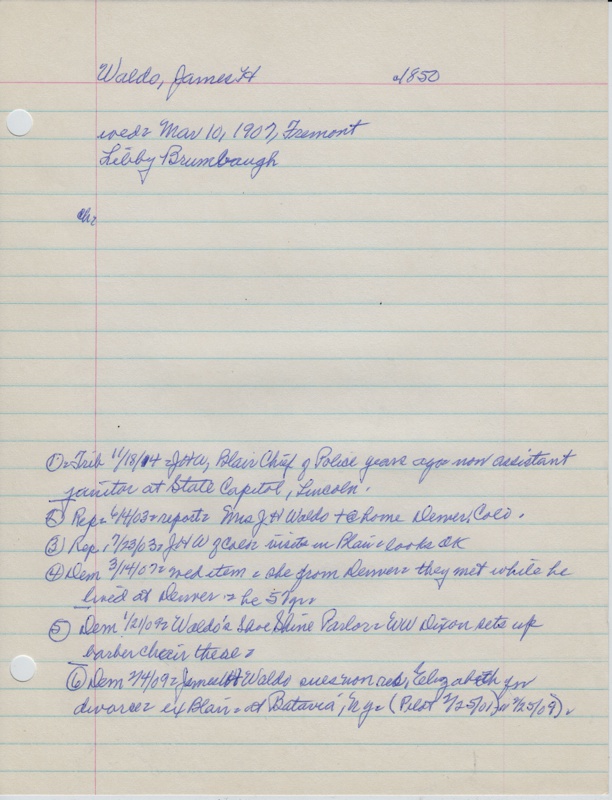 Waldo, James H 1850
wed= Mar 10, 1907, Fremont
Libby Brumbaugh
ch=
①=Trib 11/18/14=JHW, Blair Chief of Police years ago= now assistant
janitor at State Capitol, Lincoln.
② Rep= 6/4/03= report= Mrs J H Waldo + c home Denver, Colo.
③ Rep, 7/23/03= JHW of Colo= visits in Blair= looks OK
④ Dem 3/14/07= wed item= she from Denver= they met while he
lived at Denver = he 57yr=
⑤ Dem 1/21/09= Waldo's Shoe Shine Parlor= WW Dixon sets up
barber chair there=
⑥ Dem 2/4/09= James H Waldo sues non res, Elizabeth for
divorce= ex Blair= at Batavia, Ny= (Pilot 2/25/09)